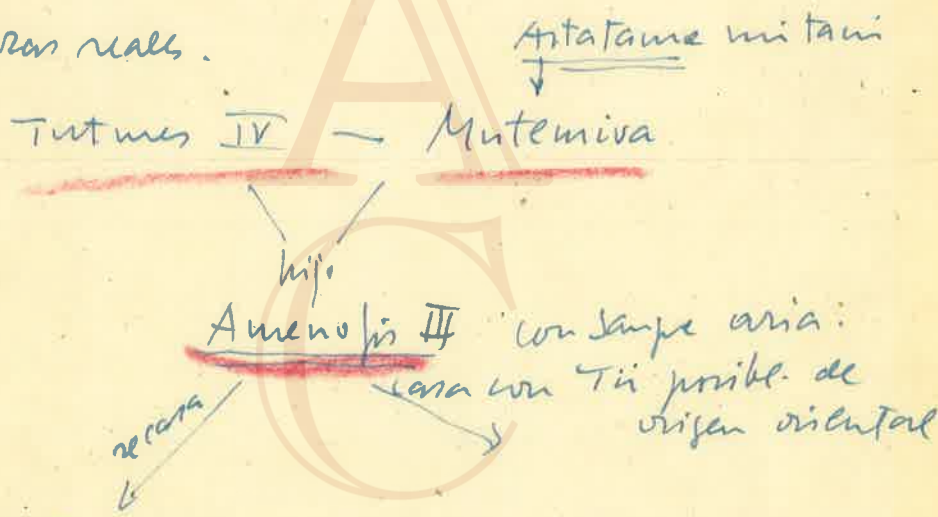 reales.
Artatama mitani
Tutmes IV — Mutemiva
hijo
Amenofis III con sangre aria:
casa con Tii posibl. de
origen oriental
se casa
A
C